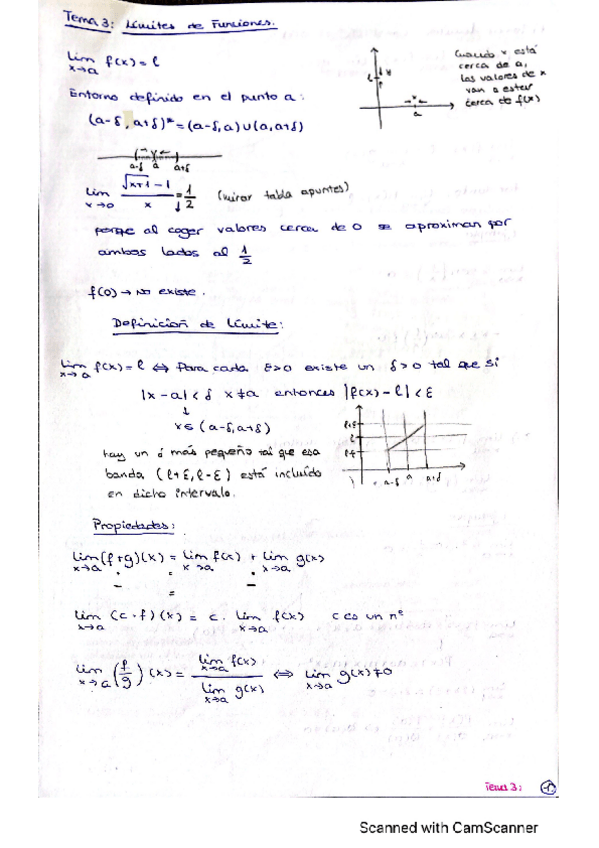 Tema 3: Límites de Funciones.
lim f(x) = l
x→a
Cuando x está
cerca de a,
los valores de x
van a estar
cerca de f(x)
l
a
Entorno definido en el punto a:
(a-δ, a+δ)* = (a-δ, a) ∪ (a, a+δ)
a-δ a a+δ
lim √x+1 - 1 / x = 1/2 (mirar tabla apuntes)
x→0
porque al coger valores cerca de 0 se aproximan por
ambos lados al 1/2
f(0) → No existe.
Definición de Límite:
lim f(x) = l ⇔ Para cada ε>0 existe un δ>0 tal que si
x→a
|x - a| < δ x≠a entonces |f(x) - l| < ε
↓
x ∈ (a-δ, a+δ)
hay un δ más pequeño tal que esa
banda (l+ε, l-ε) está incluído
en dicho intervalo.
l+ε
l
a-δ a a+δ
Propiedades:
lim (f+g)(x) = lim f(x) + lim g(x)
x→a x→a x→a
· · ·
- = -
lim (c·f)(x) = c. lim f(x) c es un nº
x→a x→a
lim (f/g)(x) = lim f(x) / lim g(x) ⇔ lim g(x) ≠ 0
x→a x→a x→a x→a
Tema 3:
1
Scanned with CamScanner